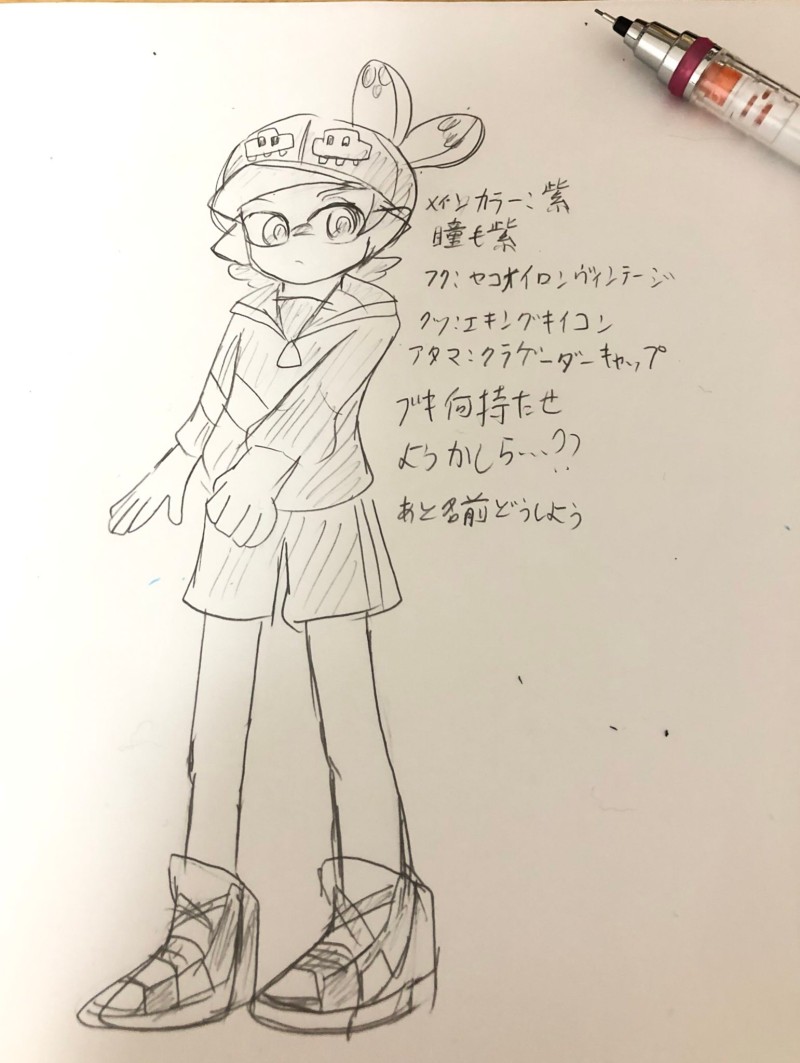 メインカラー:紫
瞳も紫
フク:ヤコオイロンヴィンテージ
クツ:エキングキイコン
アタマ:クラゲーダーキャップ
ブキ何持たせ
ようかしら…??
あと名前どうしよう